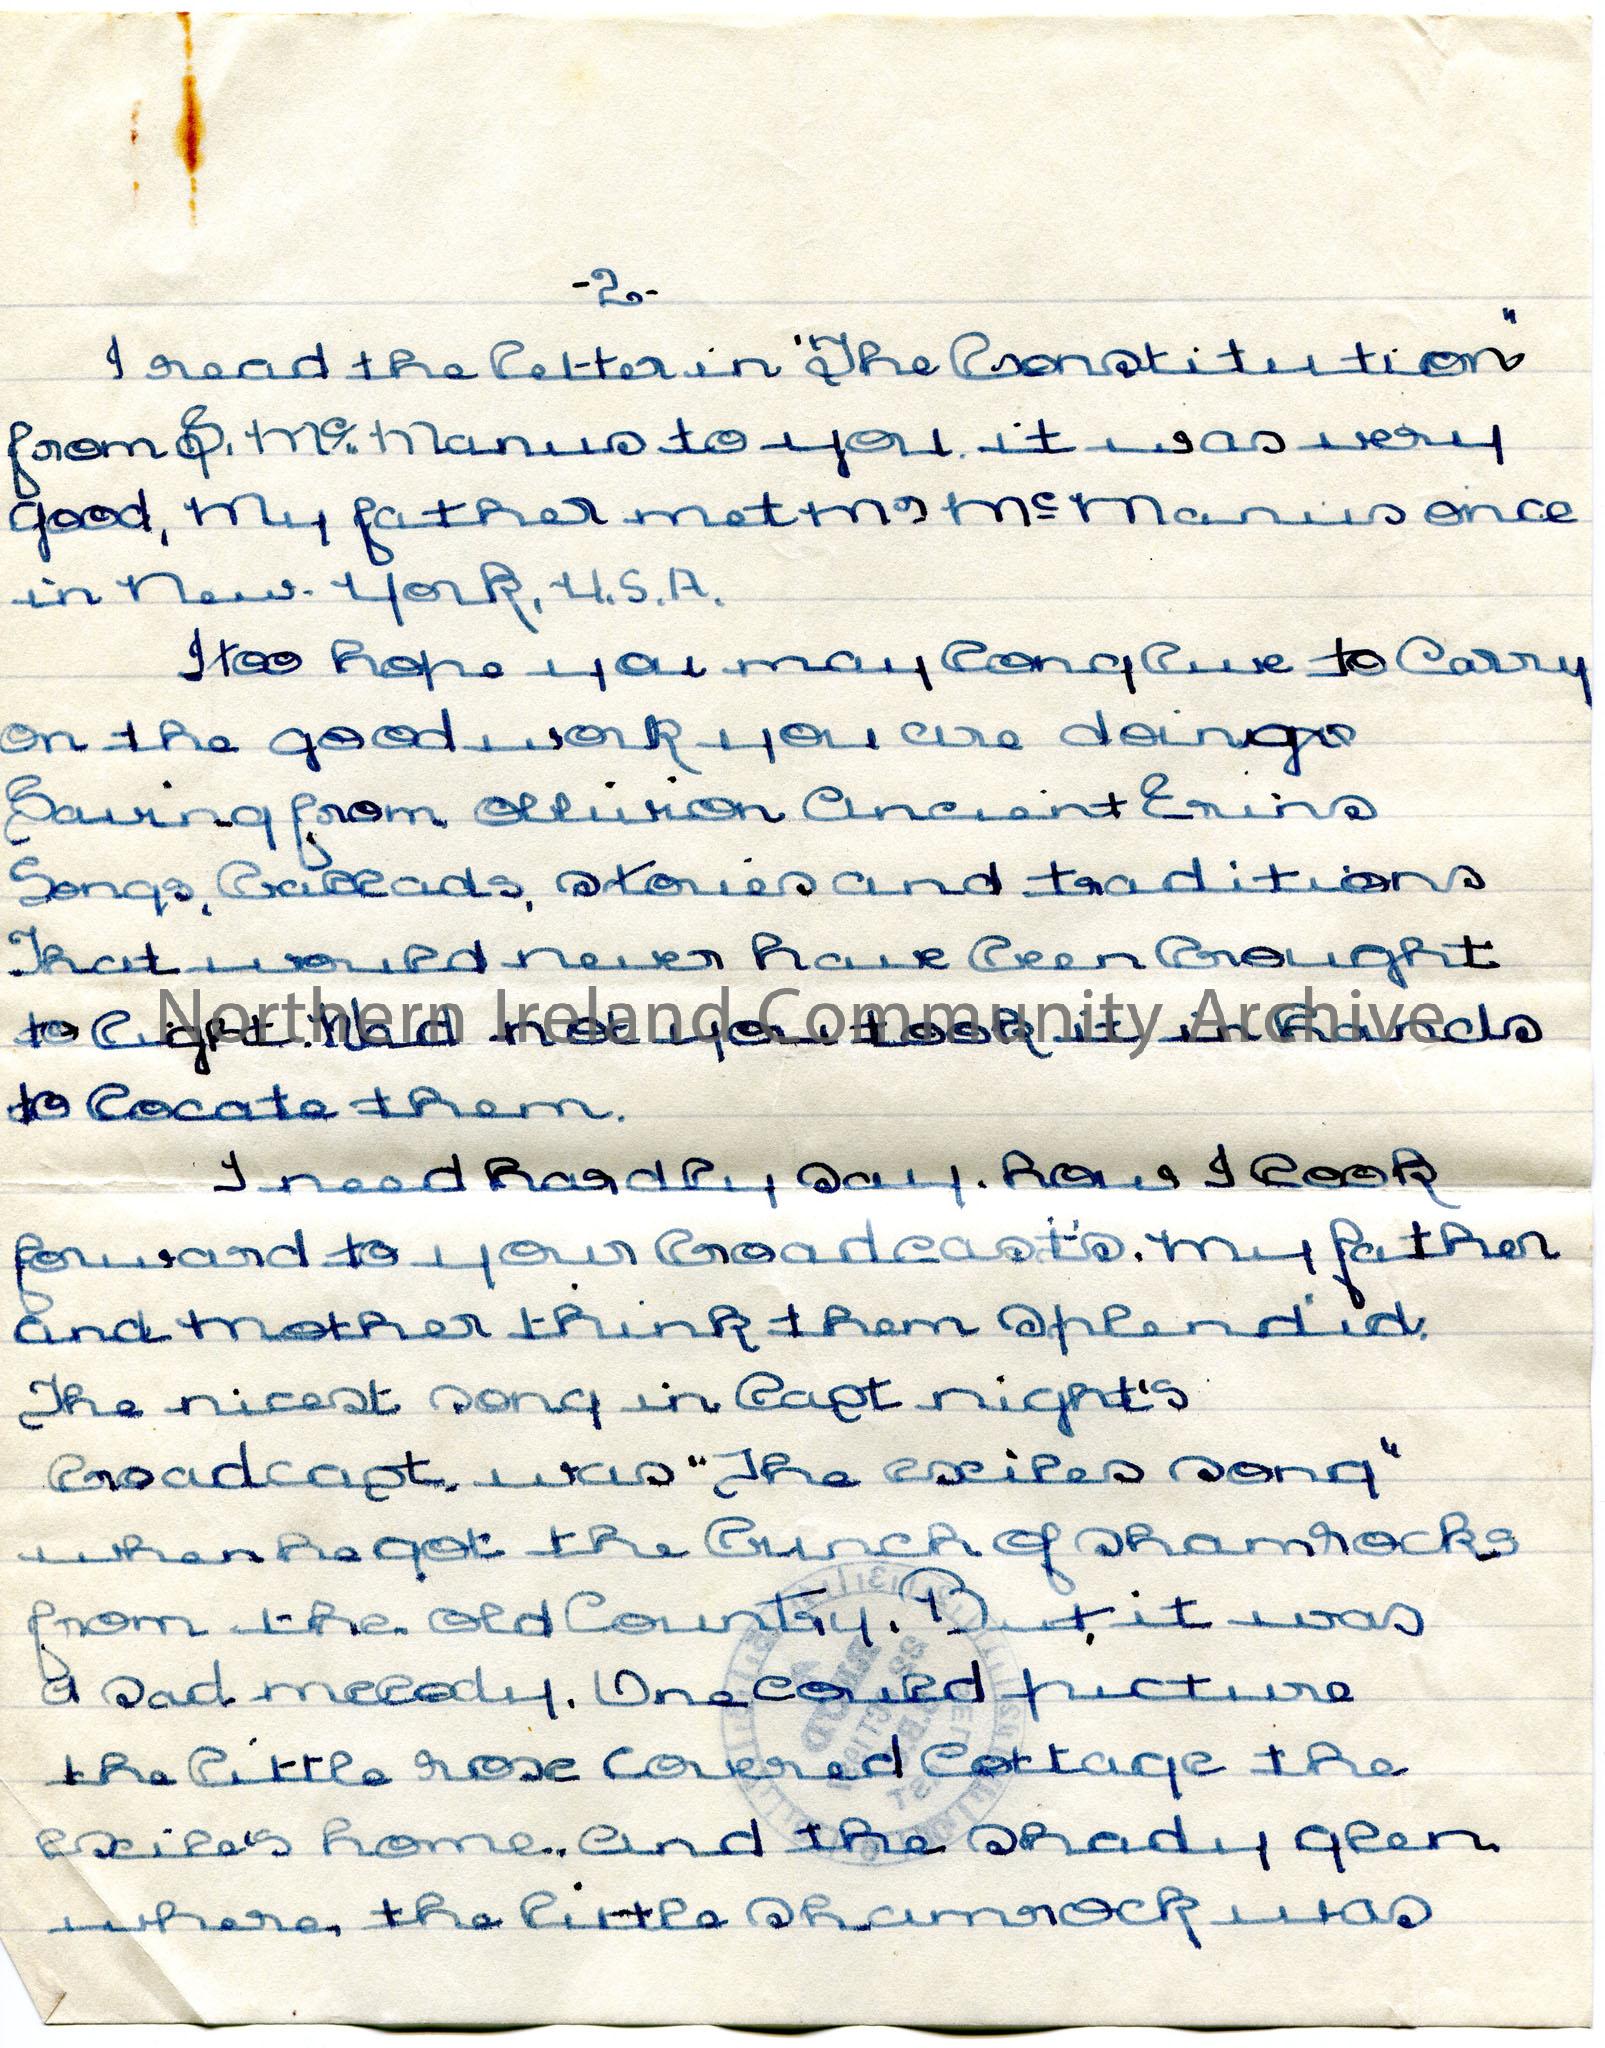 -2-
I read the letter in "The Constitution"
from S. Mc. Manus to you. it was very
good, My father met Mr McManus once
in New. York, U.S.A.
I too hope you may long live to Carry
on the good work you are doing
Saving from oblivion Ancient Erins
Songs, ballads, stories and traditions
That would never have been brought
to light. Had not you took it in hands
to locate them.
I need hardly say. how I look
forward to your broadcast's. My father
and Mother think them splendid.
The nicest song in last night's
broadcast. was "The exiles song"
when he got the bunch of shamrocks
from the. old Country. But, it was
a sad melody. One could picture
the little rose covered Cottage the
exile's home.. and the shady glen.
where, the little shamrock was
Northern Ireland Community Archive